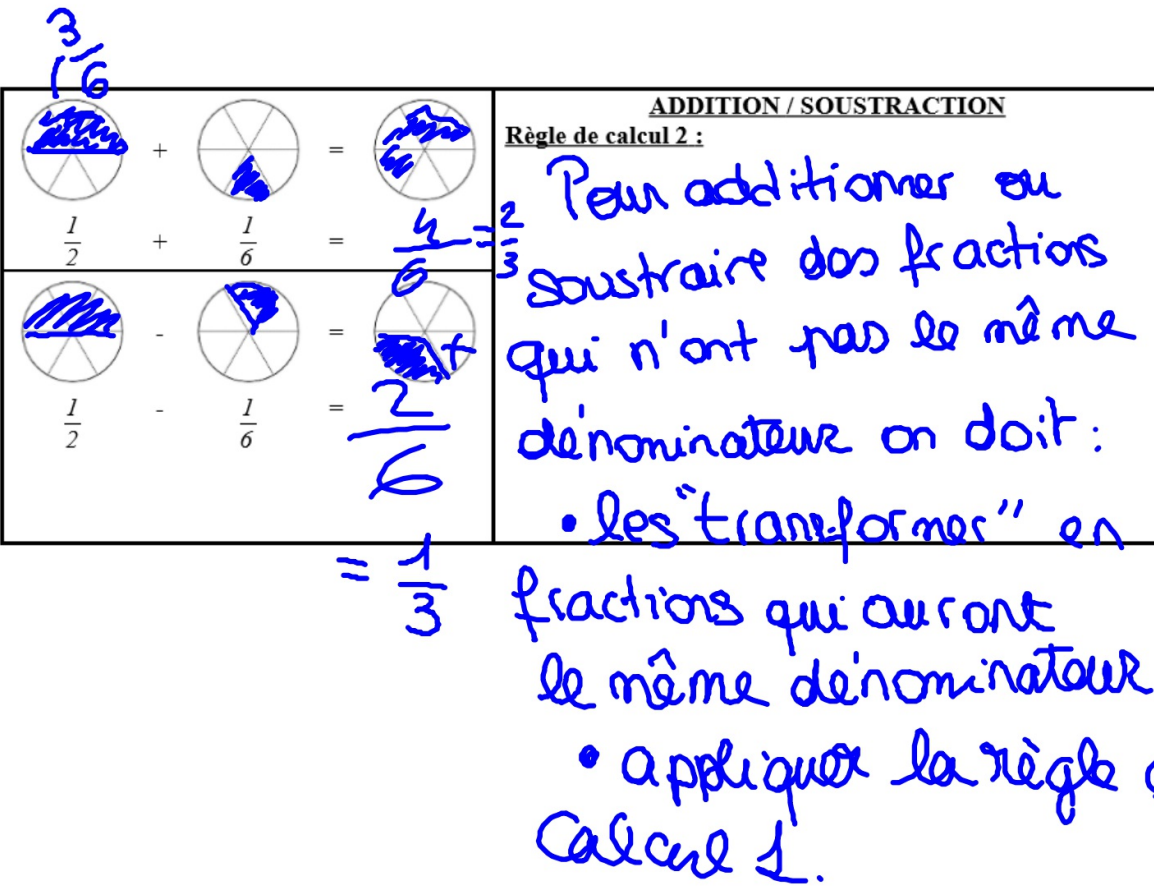 3/6
+ =
1/2 + 1/6 = 4/6 = 2/3
- =
1/2 - 1/6 = 2/6
= 1/3
ADDITION / SOUSTRACTION
Règle de calcul 2 :
Pour additionner ou
soustraire des fractions
qui n'ont pas le même
dénominateur on doit :
• les "transformer" en
fractions qui auront
le même dénominateur
• appliquer la règle
Calcul 1.